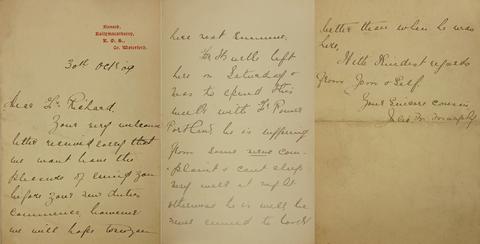 Ballymacarberry,
Co. Waterford.
30th Oct 09
Dear Fr Richard.
Your very welcome
letter received sorry that
we wont have the
pleasure of seeing you
before your new duties
commence however
we will hope to see you
here next summer.
Fr left
here on Saturday &
was to spend this
week with Fr Power
Portlaw he is suffering
from some nerve com-
plaint & cant sleep
very well at night
otherwise he is well he
never seemed to look
better than when he was
here.
With kindest regards
from & Self
Your Sincere cousin